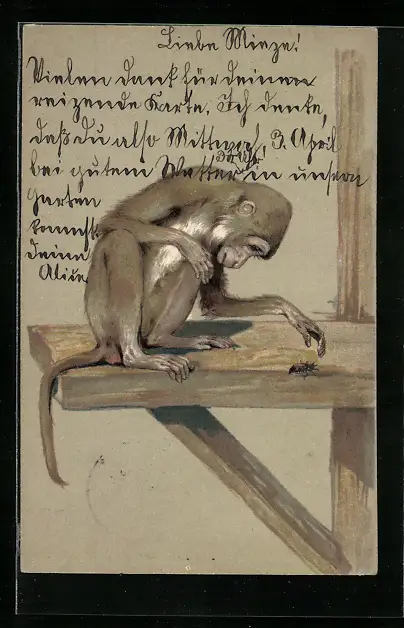 Liebe Minze!
Vielen Dank für deinen
reizende Karte. Ich denke,
daß du also Mittwoch, 3. April
3 Uhr
bei gutem Wetter in unsern
Garten
kommst
Deine
Alice